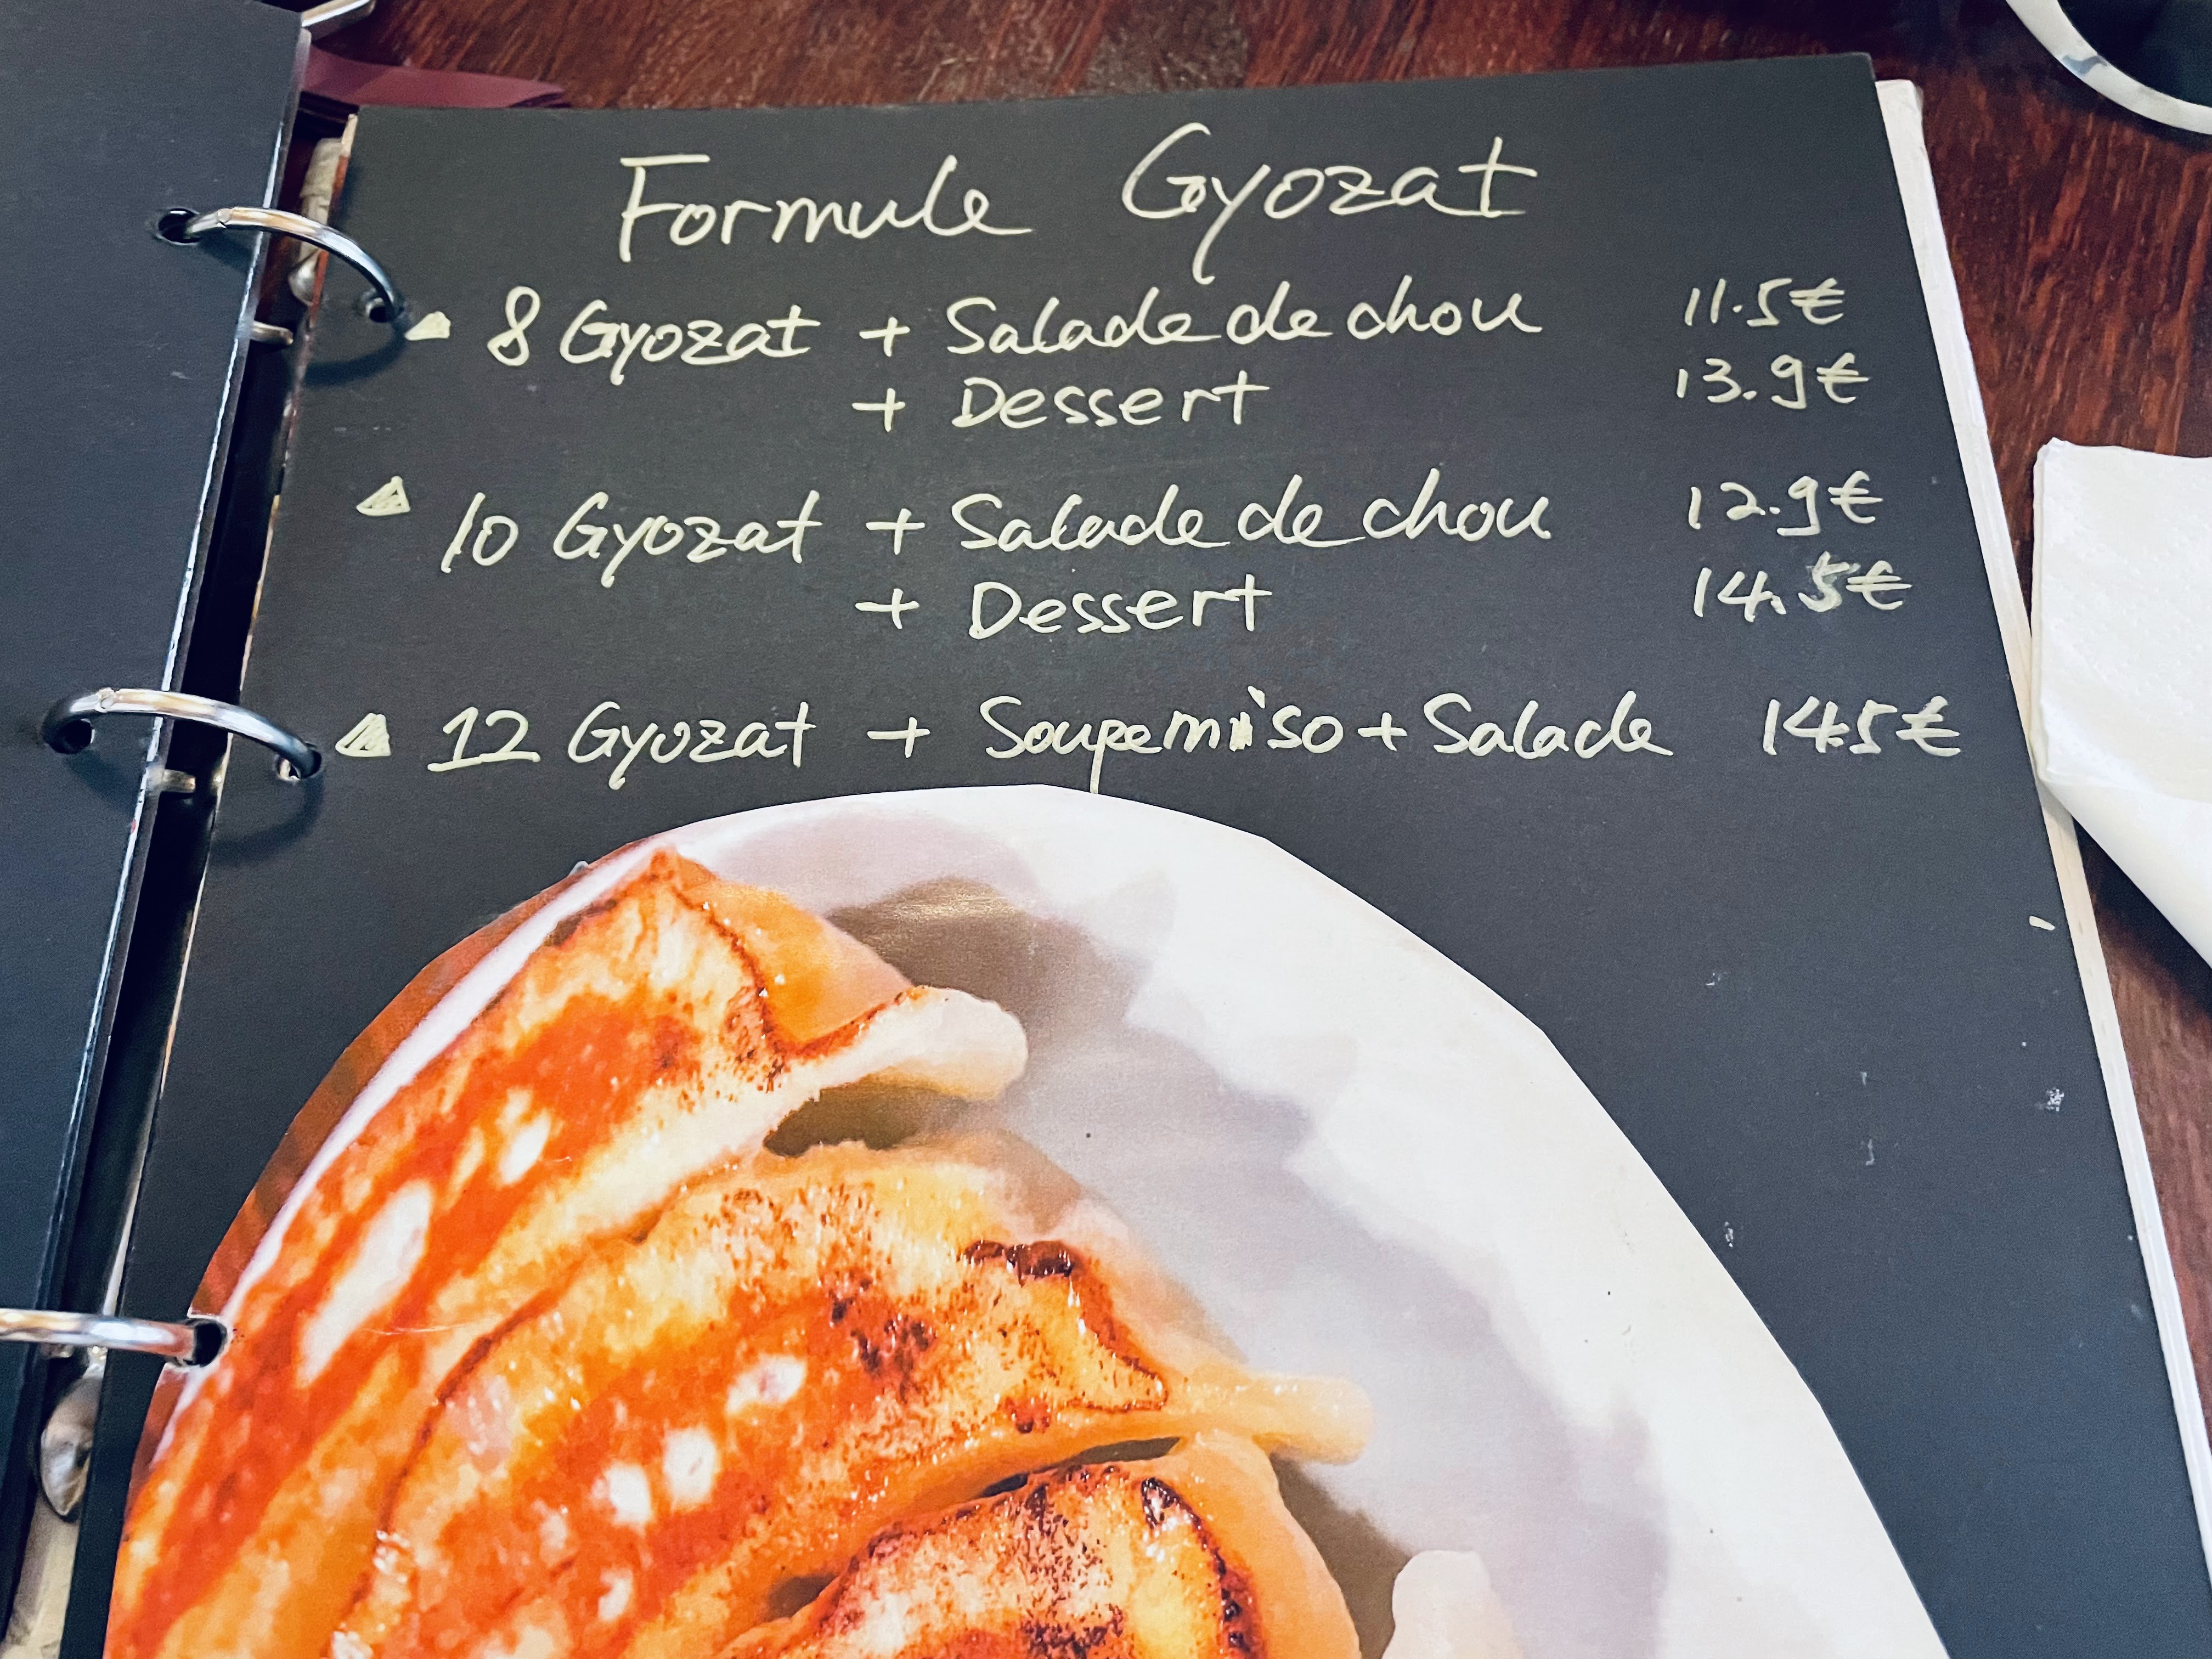 Formule Gyozat
8 Gyozat + Salade de chou 11.5€
+ Dessert 13.9€
10 Gyozat + Salade de chou 12.9€
+ Dessert 14.5€
12 Gyozat + Soupe miso + Salade 14.5€